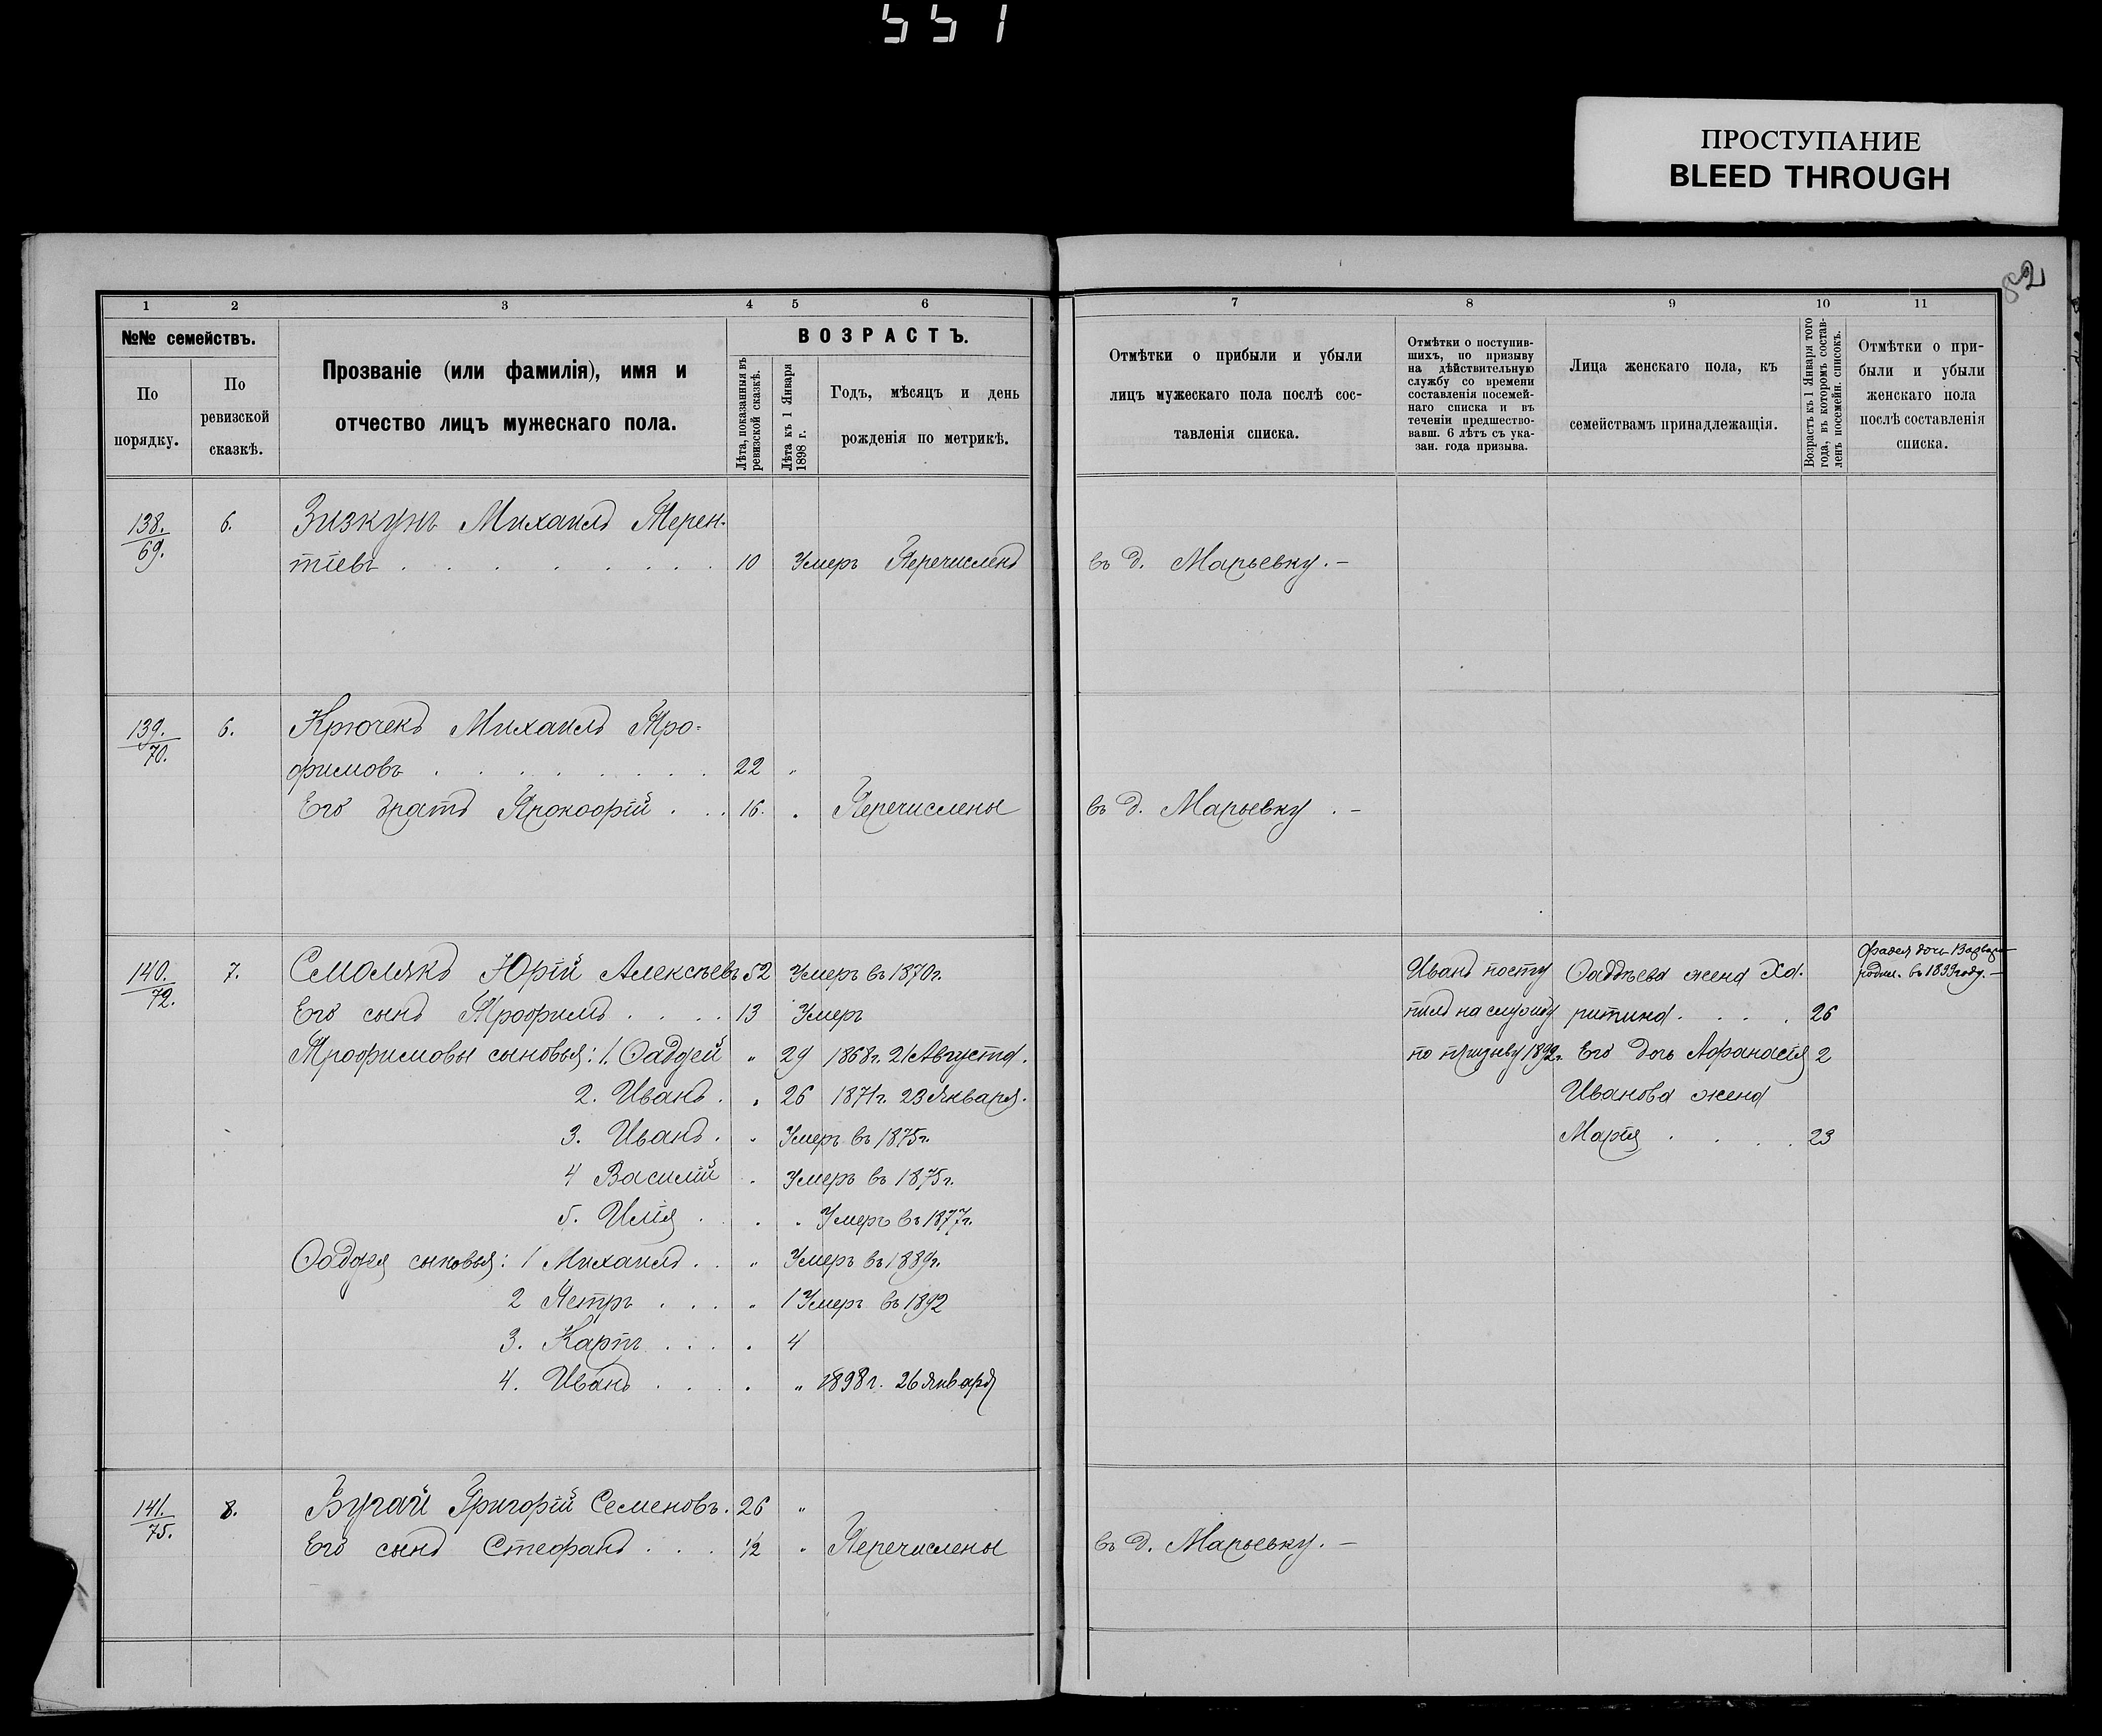 551
ПРОСТУПАНИЕ
BLEED THROUGH
82
1 2 3 4 5 6
№№ семействъ.
По порядку.
По ревизской сказкѣ.
Прозваніе (или фамилія), имя и
отчество лицъ мужескаго пола.
ВОЗРАСТЪ.
Лѣта, показанныя въ ревизской сказкѣ.
Лѣта къ 1 Января 1898 г.
Годъ, мѣсяцъ и день
рожденія по метрикѣ.
7 8 9 10 11
Отмѣтки о прибыли и убыли
лицъ мужескаго пола послѣ сос-
тавленія списка.
Отмѣтки о поступив-
шихъ, по призыву
на дѣйствительную
службу со времени
составленія посемей-
наго списка и въ
теченіи предшество-
вавш. 6 лѣтъ съ ука-
зан. года призыва.
Лица женскаго пола, къ
семействамъ принадлежащія.
Возрастъ къ 1 Января того
года, въ которомъ состав-
ленъ посемейн. списокъ.
Отмѣтки о при-
были и убыли
женскаго пола
послѣ составленія
списка.
138. 6. Зизкунъ Михаилъ Терен-
69. тіевъ 10 Умеръ Перечисленъ въ д. Марьевку.-
139. 6. Крючекъ Михаилъ Тро-
70. фимовъ 22 "
Его братъ Прокофій 16. " Перечислены въ д. Марьевку.-
140. 7. Смолякъ Юрій Алексѣевъ 52 Умеръ въ 1870г. Иванъ посту Ѳаддѣева жена Ха-
72. Его сынъ Трофимъ 13 Умеръ пилъ на службу ритина 26
Трофимовы сыновья: 1. Ѳаддей " 29 1868г. 21 Августа. по призыву 1892г. Его дочь Афанасія 2
2. Иванъ " 26 1871г. 23 Января. Иванова жена
3. Иванъ " Умеръ въ 1875г. Марія 23
4 Василій " Умеръ въ 1875г.
5. Илія " " Умеръ въ 1877г.
Ѳаддея сыновья: 1 Михаилъ " Умеръ въ 1889г.
2 Петръ " 1 Умеръ въ 1892
3. Карпъ " 4
4. Иванъ " " 1898г. 26 Января
Фадея дочь
родил. въ 1899 году.-
141. 8. Бугай Григорій Семеновъ. 26 "
75. Его сынъ Стефанъ 1/2 " Перечислены въ д. Марьевку.-